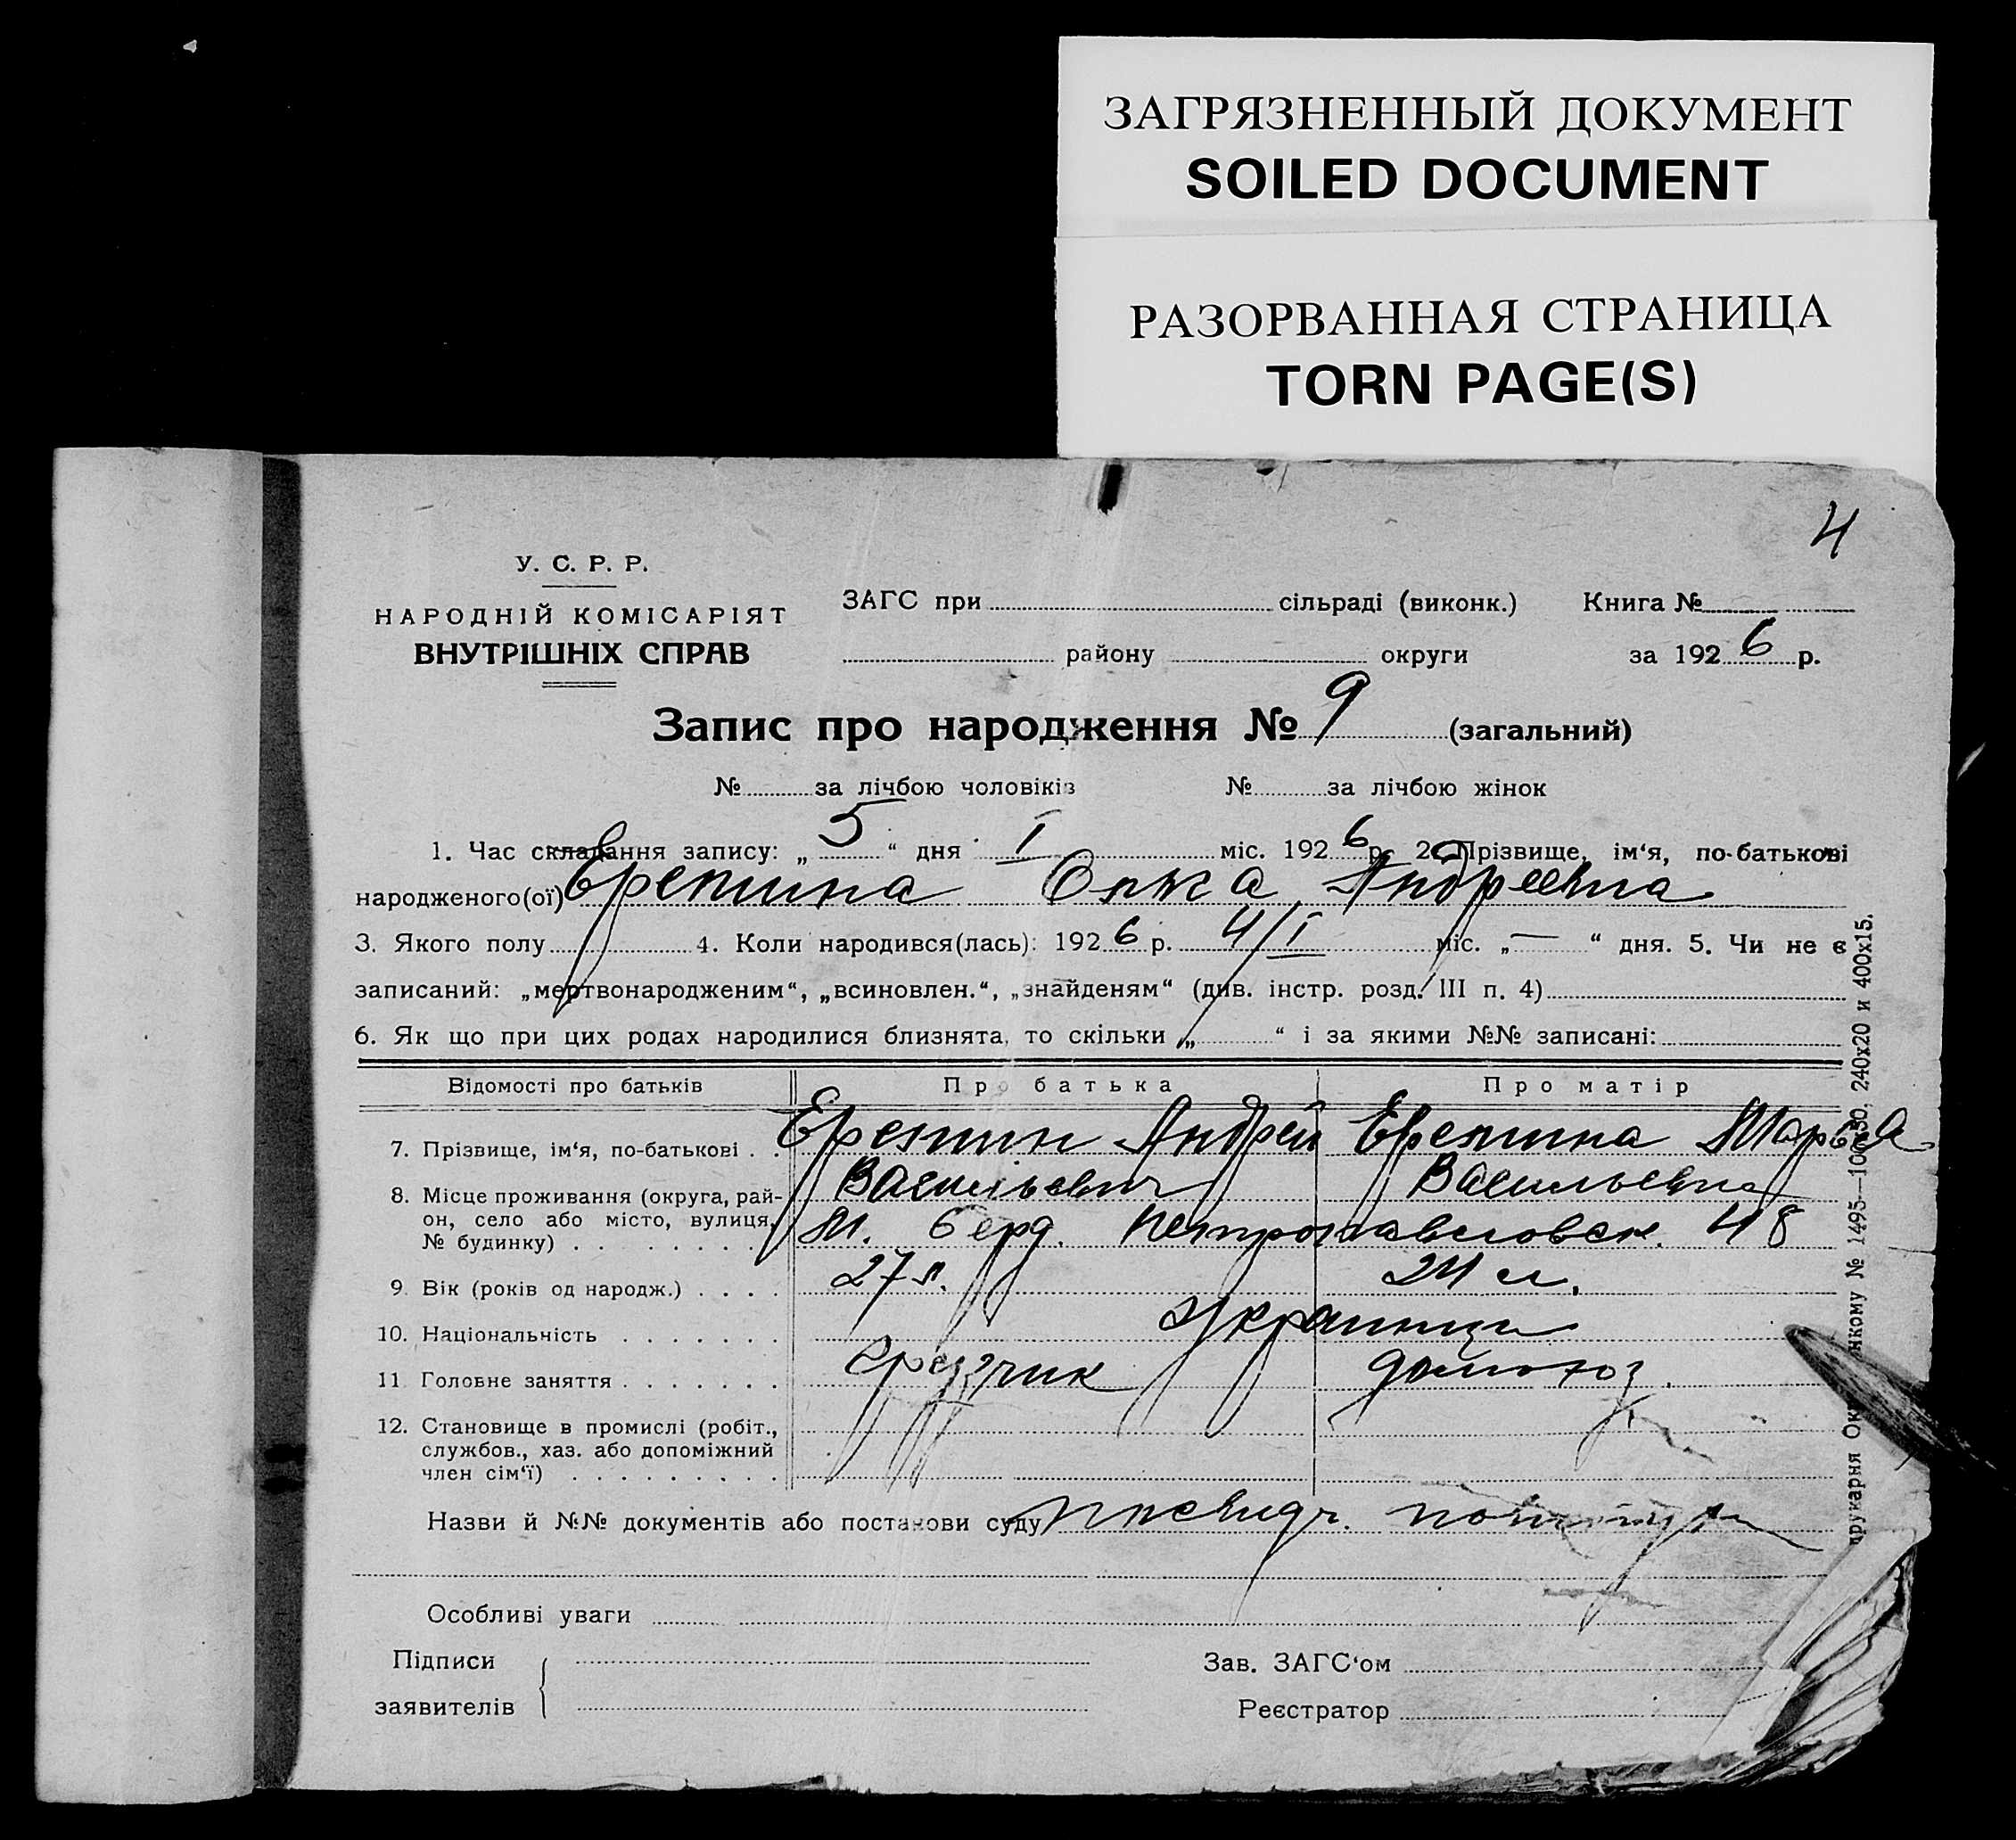 ЗАГРЯЗНЕННЫЙ ДОКУМЕНТ
SOILED DOCUMENT
РАЗОРВАННАЯ СТРАНИЦА
TORN PAGE(S)
4
У. С. Р. Р.
НАРОДНІЙ КОМІСАРІЯТ
ВНУТРІШНІХ СПРАВ
ЗАГС при сільраді (виконк.) Книга №
району округи за 1926 р.
Запис про народження № 9 (загальний)
№ за лічбою чоловіків № за лічбою жінок
1. Час складання запису: „5“ дня I міс. 1926 р. 2. Прізвище, ім‘я, по-батькові
народженого(ої) Еремина Ольга Андреевна
3. Якого полу 4. Коли народився(лась): 1926 р. 4/I міс. „—“ дня. 5. Чи не є
записаний: „мертвонародженим“, „всиновлен.“, „знайденям“ (див. інстр. розд. III п. 4)
6. Як що при цих родах народилися близнята, то скільки „ “ і за якими №№ записані:
Відомості про батьків Про батька Про матір
7. Прізвище, ім‘я, по-батькові . . Еремин Андрей Еремина Марья
Васильевич Васильевна
8. Місце проживання (округа, рай-
он, село або місто, вулиця,
№ будинку) . . . . . . . М. Берд. Петропавловск. 48
9. Вік (років од народж.) . . . . 27 л. 24 л.
10. Національність . . . . . . . Украинцы
11. Головне заняття . . . . . . . грузчик домохоз.
12. Становище в промислі (робіт.,
службов., хаз. або допоміжний
член сім‘ї) . . . . . . . . .
Назви й №№ документів або постанови суду
Особливі уваги
Підписи
заявителів
Зав. ЗАГС‘ом
Реєстратор
№ 1495—100х50, 240х20 и 400х15.